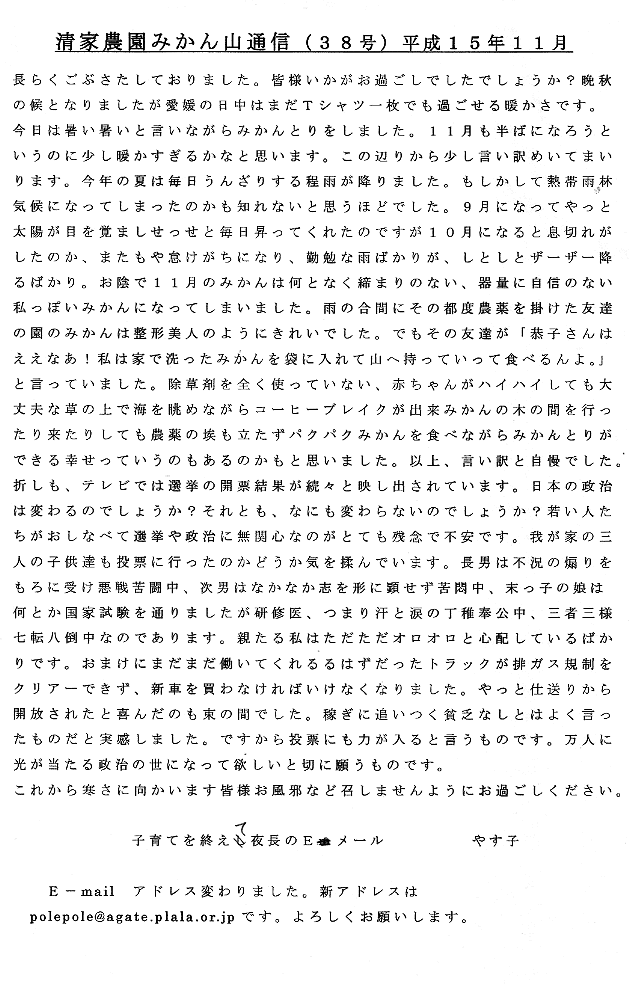 清家農園みかん山通信（３８号）平成１５年１１月
長らくごぶさたしておりました。皆様いかがお過ごしでしたでしょうか？晩秋
の候となりましたが愛媛の日中はまだＴシャツ一枚でも過ごせる暖かさです。
今日は暑い暑いと言いながらみかんとりをしました。１１月も半ばになろうと
いうのに少し暖かすぎるかなと思います。この辺りから少し言い訳めいてまい
ります。今年の夏は毎日うんざりする程雨が降りました。もしかして熱帯雨林
気候になってしまったのかも知れないと思うほどでした。９月になってやっと
太陽が目を覚ましせっせと毎日昇ってくれたのですが１０月になると息切れが
したのか、またもや怠けがちになり、勤勉な雨ばかりが、しとしとザーザー降
るばかり。お陰で１１月のみかんは何となく締まりのない、器量に自信のない
私っぽいみかんになってしまいました。雨の合間にその都度農薬を掛けた友達
の園のみかんは整形美人のようにきれいでした。でもその友達が「恭子さんは
ええなあ！私は家で洗ったみかんを袋に入れて山へ持っていって食べるんよ。」
と言っていました。除草剤を全く使っていない、赤ちゃんがハイハイしても大
丈夫な草の上で海を眺めながらコーヒーブレイクが出来みかんの木の間を行っ
たり来たりしても農薬の埃も立たずパクパクみかんを食べながらみかんとりが
できる幸せっていうのもあるのかもと思いました。以上、言い訳と自慢でした。
折しも、テレビでは選挙の開票結果が続々と映し出されています。日本の政治
は変わるのでしょうか？それとも、なにも変わらないのでしょうか？若い人た
ちがおしなべて選挙や政治に無関心なのがとても残念で不安です。我が家の三
人の子供達も投票に行ったのかどうか気を揉んでいます。長男は不況の煽りを
もろに受け悪戦苦闘中、次男はなかなか志を形に顕せず苦悶中、末っ子の娘は
何とか国家試験を通りましたが研修医、つまり汗と涙の丁稚奉公中、三者三様
七転八倒中なのであります。親たる私はただただオロオロと心配しているばか
りです。おまけにまだまだ働いてくれるるはずだったトラックが排ガス規制を
クリアーできず、新車を買わなければいけなくなりました。やっと仕送りから
開放されたと喜んだのも束の間でした。稼ぎに追いつく貧乏なしとはよく言っ
たものだと実感しました。ですから投票にも力が入ると言うものです。万人に
光が当たる政治の世になって欲しいと切に願うものです。
これから寒さに向かいます皆様お風邪など召しませんようにお過ごしください。
子育てを終えて夜長のＥメール　　　　やす子
Ｅ－mail　アドレス変わりました。新アドレスは
polepole@agate.plala.or.jp です。よろしくお願いします。